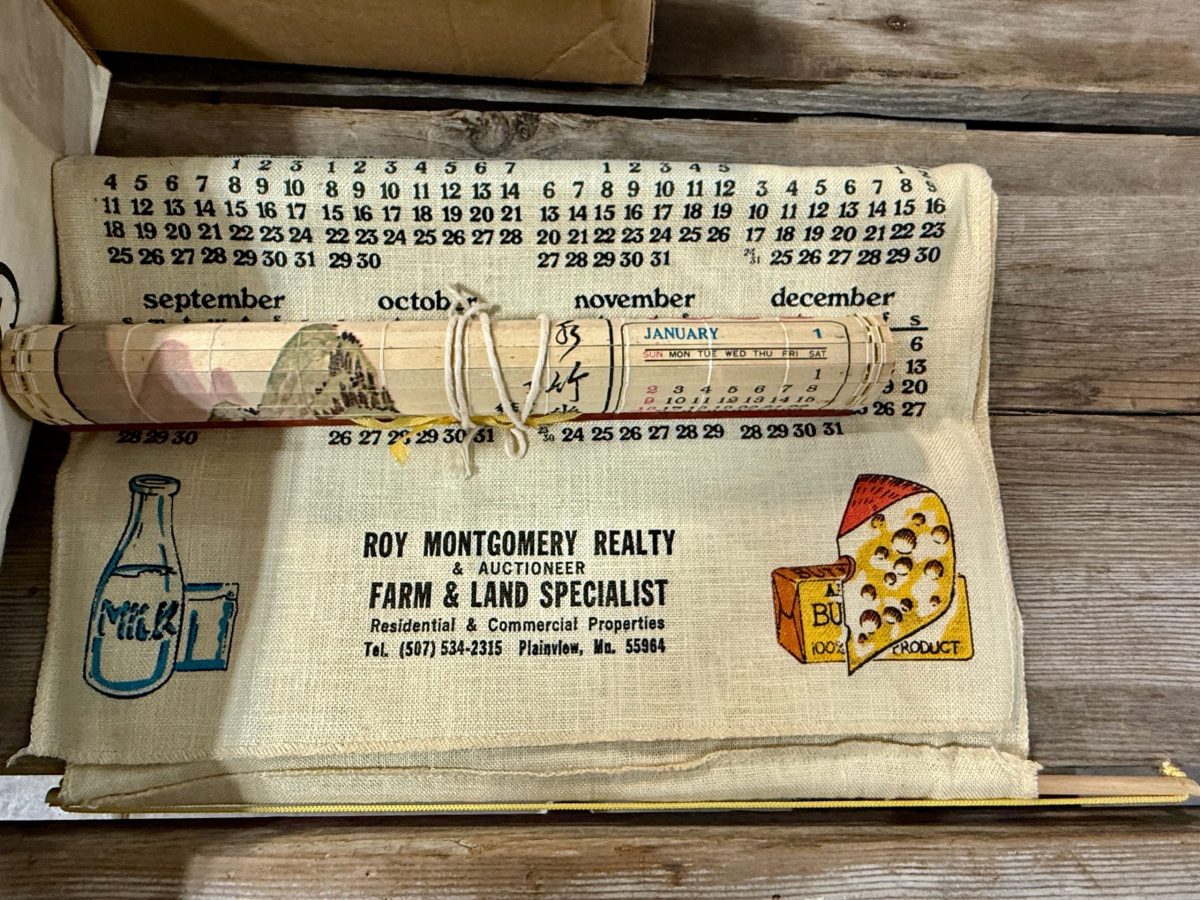 1 2 3 1 2 3 4 5 6 7 1 2 3 4 5 1 2
4 5 6 7 8 9 10 8 9 10 11 12 13 14 6 7 8 9 10 11 12 3 4 5 6 7 8 9
11 12 13 14 15 16 17 15 16 17 18 19 20 21 13 14 15 16 17 18 19 10 11 12 13 14 15 16
18 19 20 21 22 23 24 22 23 24 25 26 27 28 20 21 22 23 24 25 26 17 18 19 20 21 22 23
25 26 27 28 29 30 31 29 30 27 28 29 30 31 24/31 25 26 27 28 29 30
september october november december
s
6
13
20
26 27
JANUARY 1
SUN MON TUE WED THU FRI SAT
1
2 3 4 5 6 7 8
9 10 11 12 13 14 15
竹
28 29 30 26 27 28 29 30 31 23/30 24 25 26 27 28 29 28 29 30 31
MILK
ROY MONTGOMERY REALTY
& AUCTIONEER
FARM & LAND SPECIALIST
Residential & Commercial Properties
Tel. (507) 534-2315 Plainview, Mn. 55964
BU
100% PRODUCT